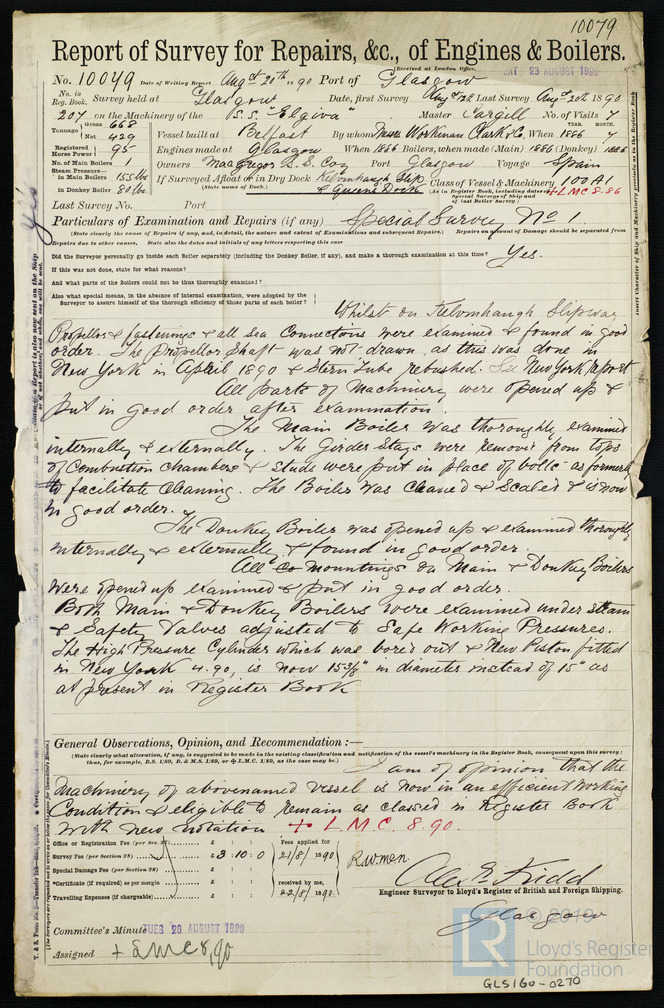 10079
Report of Survey for Repairs, &c., of Engines & Boilers.
(Received at London Office, SAT. 23 AUGUST 1890
No. 10049 Date of Writing Report Augst 20th 1890 Port of Glasgow
No. in Reg. Book. Survey held at Glasgow Date, first Survey Augst 12th Last Survey Augst 20th 1890
207 on the Machinery of the S.S. "Elgiva" Master Cargill No. of Visits 7
Tonnage Gross 668 Net 429
YEAR. MONTH.
Vessel built at Belfast By whom Messrs Workman Clark & Co, When 1886 7
Registered Horse Power 95 Engines made at Glasgow When 1886 Boilers, when made (Main) 1886 (Donkey) 1886
No. of Main Boilers 1 Owners MacGregor S.S. Coy Port Glasgow Voyage Spain
Steam Pressure— in Main Boilers 155 lbs in Donkey Boiler 80 lbs
If Surveyed Afloat or in Dry Dock Kelvinhaugh Slip & Queens Dock
(State name of Dock.)
Class of Vessel & Machinery 100A1
(As in Register Book, including dates of Special Surveys of Ship and of last Boiler Survey.) + L M C 8.86
Last Survey No. Port
Particulars of Examination and Repairs (if any) Special Survey No 1
(State clearly the cause of Repairs, if any, and, in detail, the nature and extent of Examinations and subsequent Repairs.) Repairs on account of Damage should be separated from
Repairs due to other causes. State also the dates and initials of any letters respecting this case
Did the Surveyor personally go inside each Boiler separately (including the Donkey Boiler, if any), and make a thorough examination at this time? Yes.
If this was not done, state for what reasons?
And what parts of the Boilers could not be thus thoroughly examined?
Also what special means, in the absence of internal examination, were adopted by the
Surveyor to assure himself of the thorough efficiency of those parts of each boiler?
Whilst on Kelvinhaugh Slipway
Propellor & fastenings & all sea connections were examined & found in good
order. The Propellor Shaft was not drawn, as this was done in
New York in April 1890 & Stern Tube rebushed. See New York report
All parts of Machinery were opened up &
put in good order after examination.
The Main Boiler was thoroughly examined
internally & externally. The Girder Stays were removed from tops
of Combustion chambers & Studs were put in place of bolts as formerly
to facilitate cleaning. The Boiler was cleaned & scaled & is now
in good order.
The Donkey Boiler was opened up & examined thoroughly
internally & externally & found in good order.
All mountings on Main & Donkey Boilers
were opened up examined & put in good order.
Both Main & Donkey Boilers were examined under steam
& Safety Valves adjusted to Safe Working Pressures.
The High Pressure Cylinder which was bored out & New Piston fitted
in New York 4.90, is now 15 3/8" in diameter instead of 15" as
at present in Register Book
General Observations, Opinion, and Recommendation :—
(State clearly what alteration, if any, is suggested to be made in the existing classification and notification of the vessel's machinery in the Register Book, consequent upon this survey:
thus, for example, B.S. 1/89, B. & M.S. 1/89, or ✠ L.M.C. 1/89, as the case may be.)
I am of opinion that the
Machinery of abovenamed vessel is now in an efficient working
Condition & eligible to remain as classed in Register Book
with new notation + L.M.C. 8.90.
Office or Registration Fee (per Sec. 27) £ : : Fees applied for
Survey Fee (per Section 28) £ 3 : 10 : 0 21/8/1890
Special Damage Fee (per Section 28) £ : :
*Certificate (if required) as per margin £ : : received by me,
Travelling Expenses (if chargeable) £ : : 22/8/1890
Engineer Surveyor to Lloyd's Register of British and Foreign Shipping.
Glasgow
Committee's Minute TUES 26 AUGUST 1890
Assigned + LMC 8,90
© 2019
LR
Lloyd's Register
Foundation
GLS160-0270